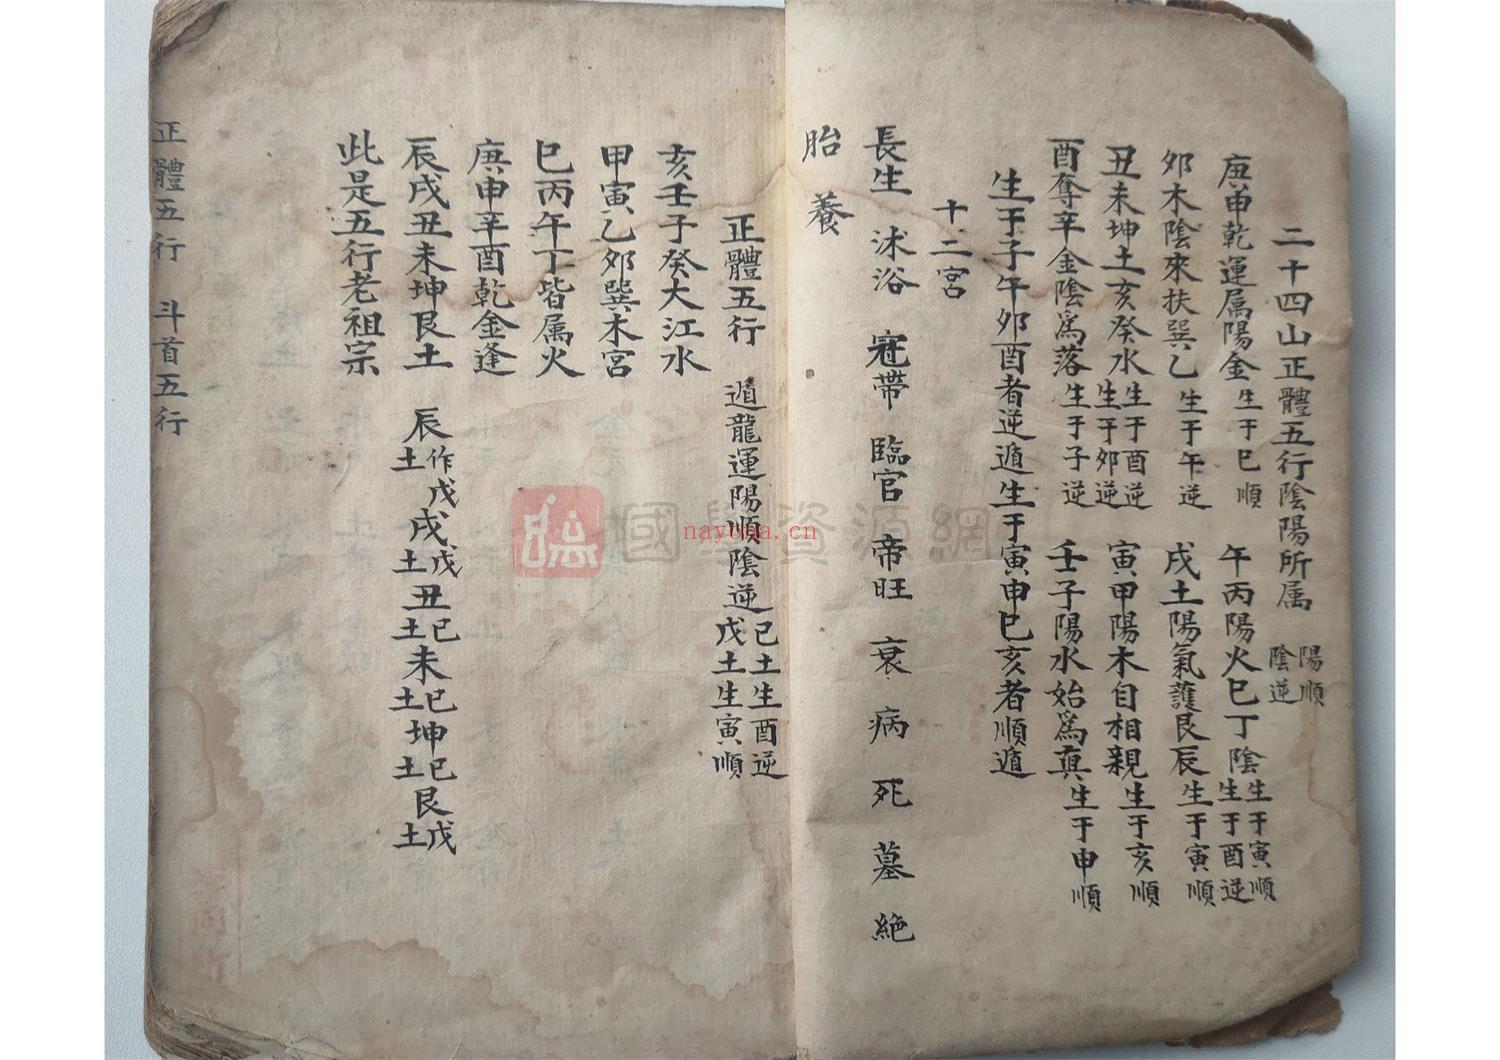 二十四山正體五行陰陽所属 陽順陰逆
庚申乾運属陽金生于巳順 午丙陽火巳丁陰生于寅順生于酉逆
夘木陰來扶巽乙生于午逆 戌土陽氣護艮辰生于寅順
丑未坤土亥癸水生于酉逆生于夘逆 寅甲陽木自相親生于亥順
酉奪辛金陰爲落生于子逆 壬子陽水始爲真生于申順
生于子午夘酉者逆遁生于寅申巳亥者順遁
十二宮
長生 沭浴 冦帶 臨官 帝旺 衰 病 死 墓 絶
胎 養
正體五行 遁龍運陽順陰逆己土生酉逆戊土生寅順
亥壬子癸大江水
甲寅乙夘巽木宮
巳丙午丁皆属火
庚申辛酉乾金逢
辰戌丑未坤艮土 辰作戊土戌戊土丑己土未己土坤己土艮戊土
此是五行老祖宗
正體五行 斗首五行
國學資源網
nayona.cn